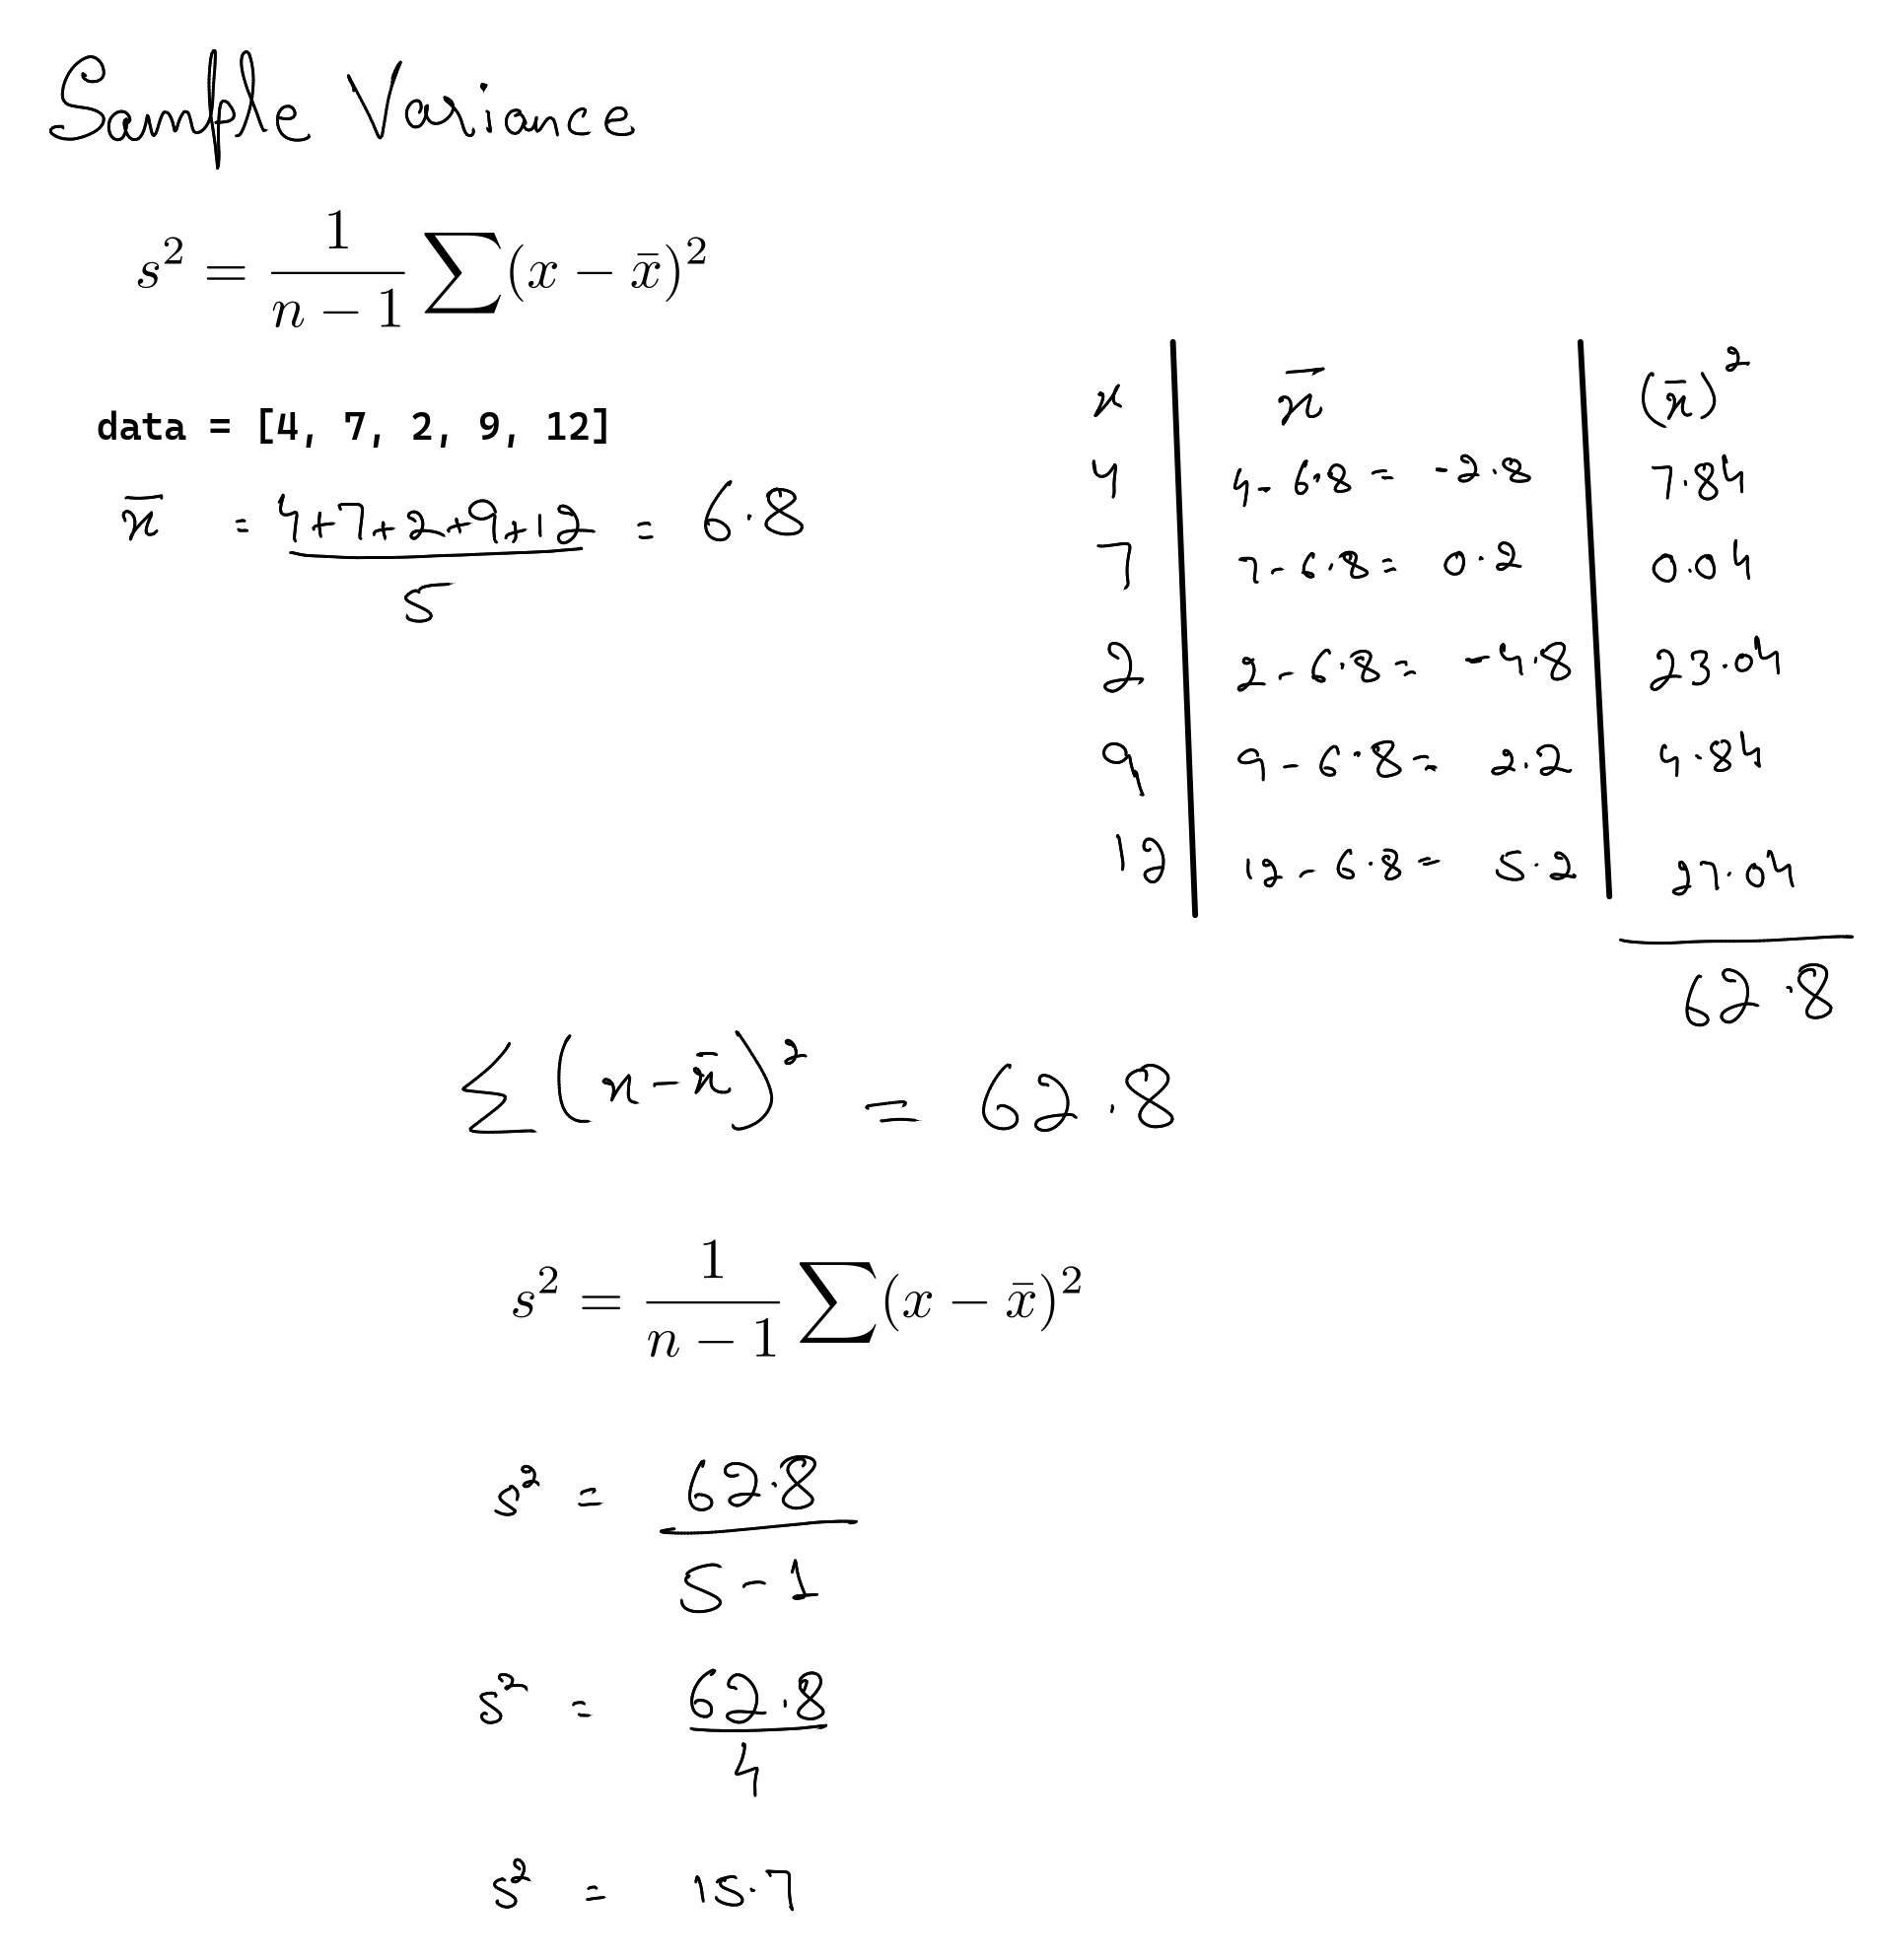 Sample Variance
s² = 1/(n − 1) ∑(x − x̄)²
data = [4, 7, 2, 9, 12]
x̄ = (4+7+2+9+12)/5 = 6.8
x | x̄ | (x̄)²
4 | 4 - 6.8 = -2.8 | 7.84
7 | 7 - 6.8 = 0.2 | 0.04
2 | 2 - 6.8 = -4.8 | 23.04
9 | 9 - 6.8 = 2.2 | 4.84
12 | 12 - 6.8 = 5.2 | 27.04
62.8
∑(x - x̄)² = 62.8
s² = 1/(n − 1) ∑(x − x̄)²
s² = 62.8/(5 - 1)
s² = 62.8/4
s² = 15.7